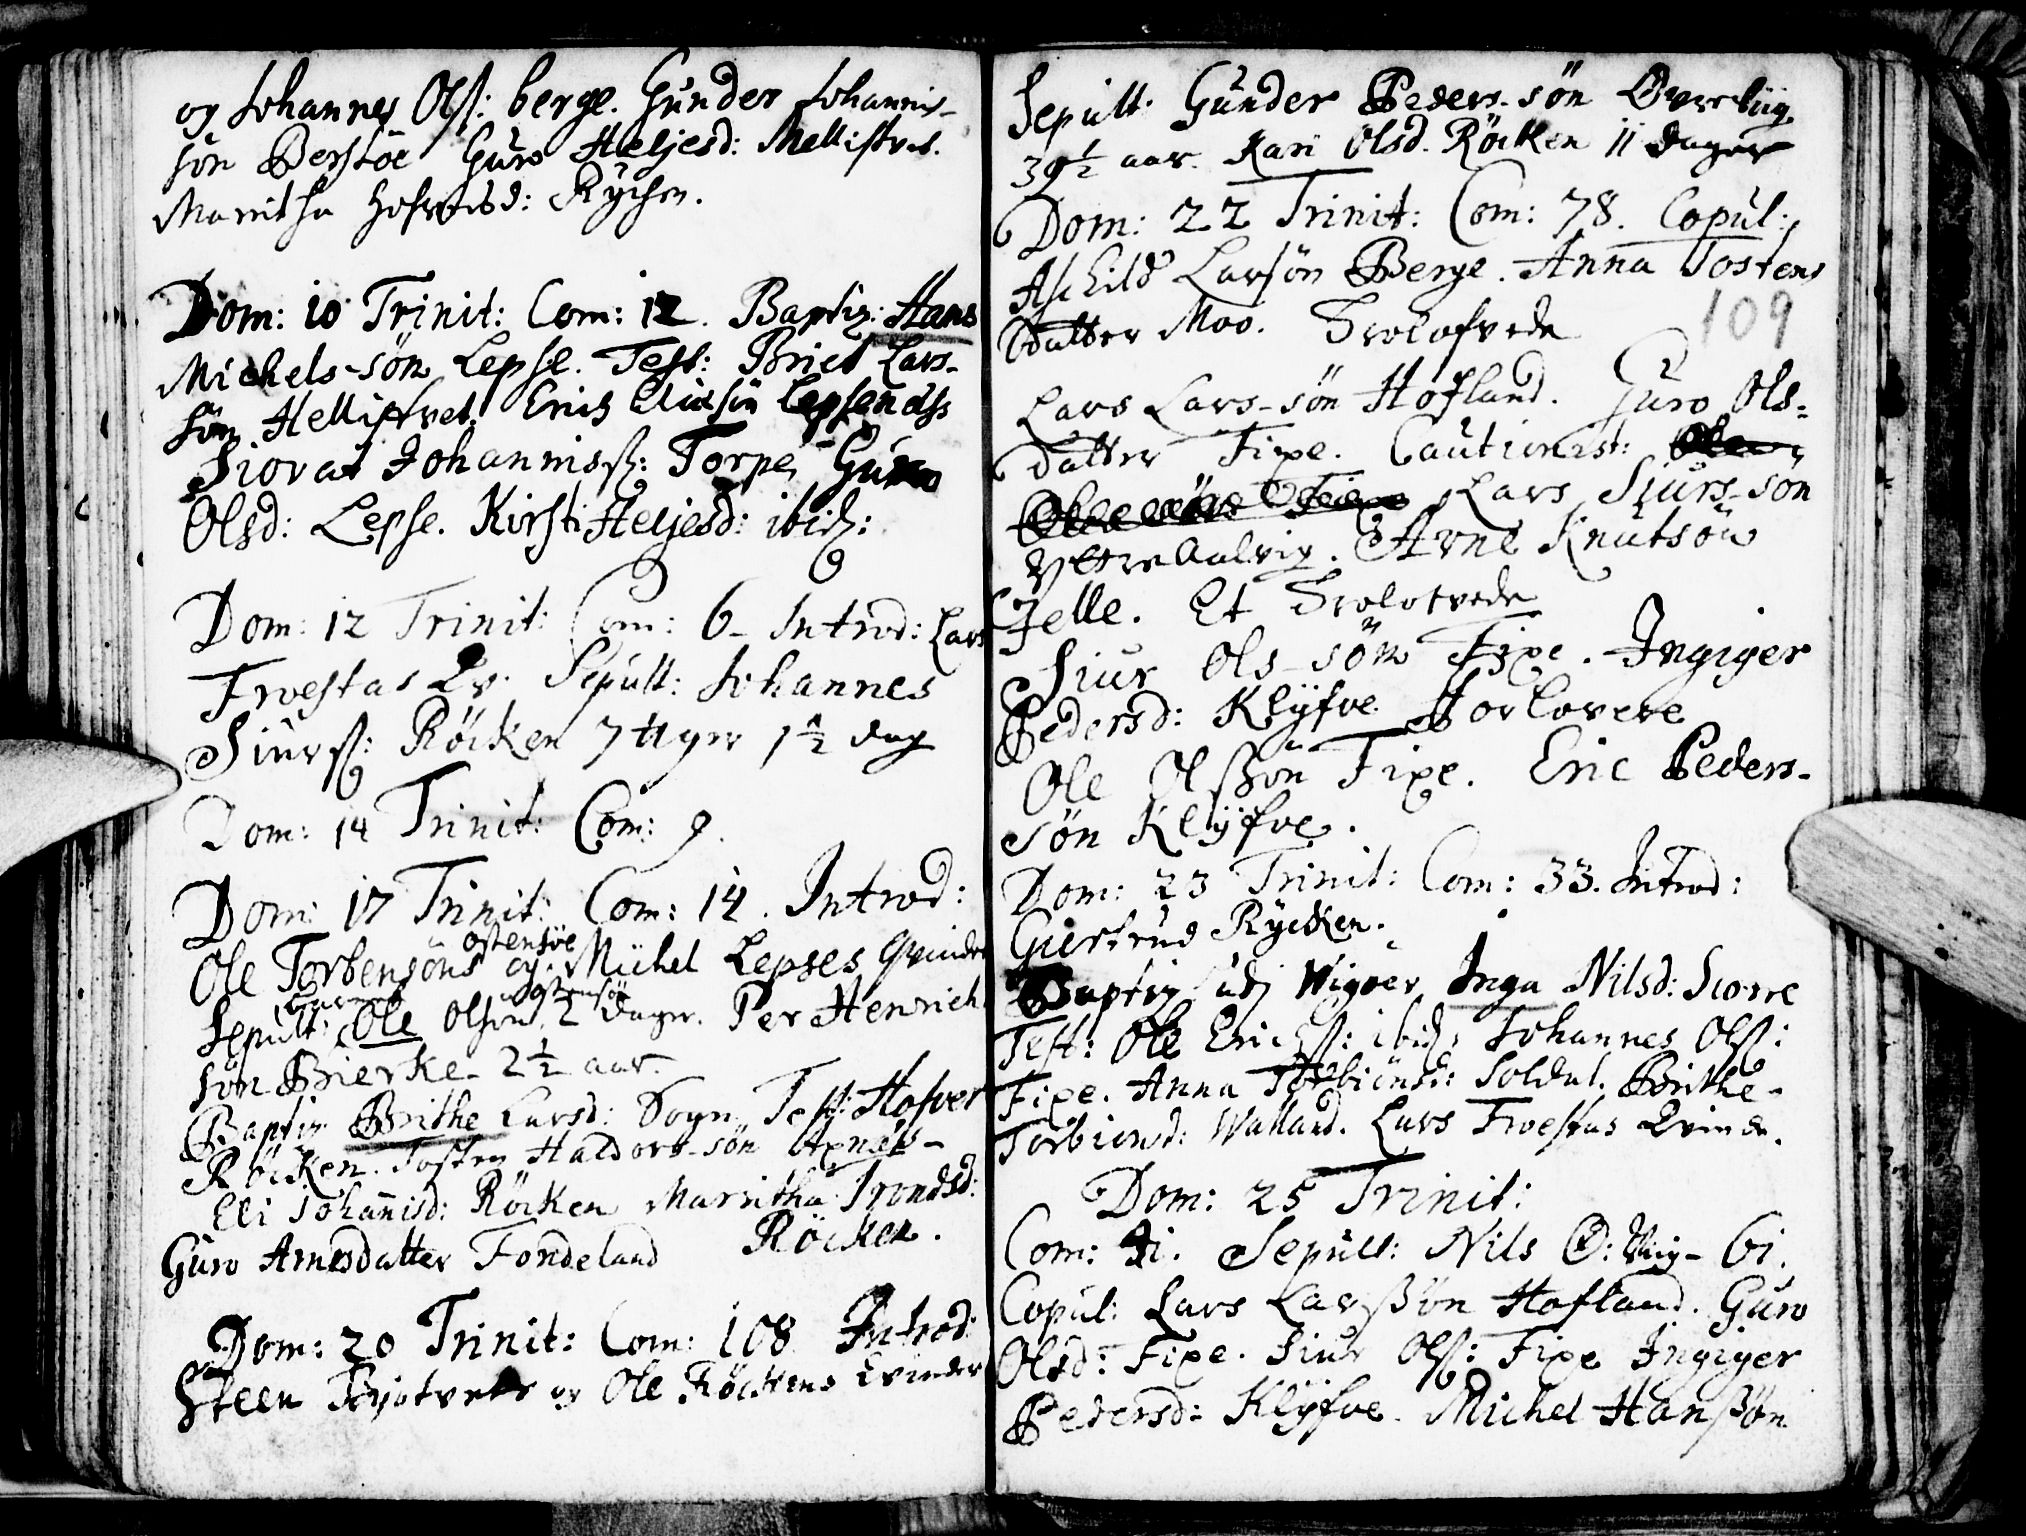 og Johannes Olß: berge. Gunder Johannis-
søn Berstøe Guro Heljesd: Mellistvet.
Marritha Rycken.
Dom: 10 Trinit: Com: 12. Baptiz: Hans
Michels-søn Lepse. Test: Brict Lars-
søn Hellistvet.
Siovat Johannisß: Torpe, Guro
Olsd: Lepse. Kirsti Heljesd: ibid:
Dom: 12 Trinit: Com: 6 - Introd: Lars
Froestas Qv. Sepult: Johannes
Siurß: Röcken 7 uger 1½ dag
Dom: 14 Trinit: Com: 9.
Dom: 17 Trinit: Com: 14. Introd:
ostensöe
Ole Torbensöns og Michel Lepses Qvinder
Sepult: Ole Olsøn 2 dager. Per Henrich
søn Bierke - 2½ aar.
Baptiz Brithe Larsd: Sogn Test: Hofver
Röcken. Tosten Haldors-søn Axnes -
Eli Johanisd: Röcken Marritha Trondsd:
Röcken.
Guro Arnesdatter Fondeland
Dom: 20 Trinit: Com: 108 Introd:
Steen og Ole Röckens Qvinder
Sepult: Gunder Peders-søn
39½ aar. Kari Olsd. Röcken 11 dager
Dom: 22 Trinit: Com: 78. Copul:
Aschild Larsøn Berge. Anna Tostens
datter Moo. Trolofvede
109
Lars Lars-søn Hofland. Guro Ols-
datter Fixe. Cautionist:
Lars Siurs-søn
Yttre Aalvig. Arne Knutsøn
Jelle. Et Trolofvede
Siur Ols-søn Fixe. Ingiger
Pedersd: Klÿfve Forlovere
Ole Olßøn Fixe. Eric Peders-
søn Klÿfve.
Dom: 23 Trinit: Com: 33. Introd:
Giertrud Rycken.
Baptiz udj Wigøer Inga Nilsd: Scorre
Test: Ole Ericß: ibid, Johannes Olß:
Fixe. Anna Torbiönsd: Soldat. Brithe -
Torbiörnd: Walland. Lars Froestas Qvinde.
Dom: 25 Trinit:
Com: Sepult: Nils 61.
Copul: Lars Larßøn Hofland. Guro
Olsd: Fixe. Siur Olß: Fixe Ingiger
Pedersd: Klÿfve. Michel Hanßøn